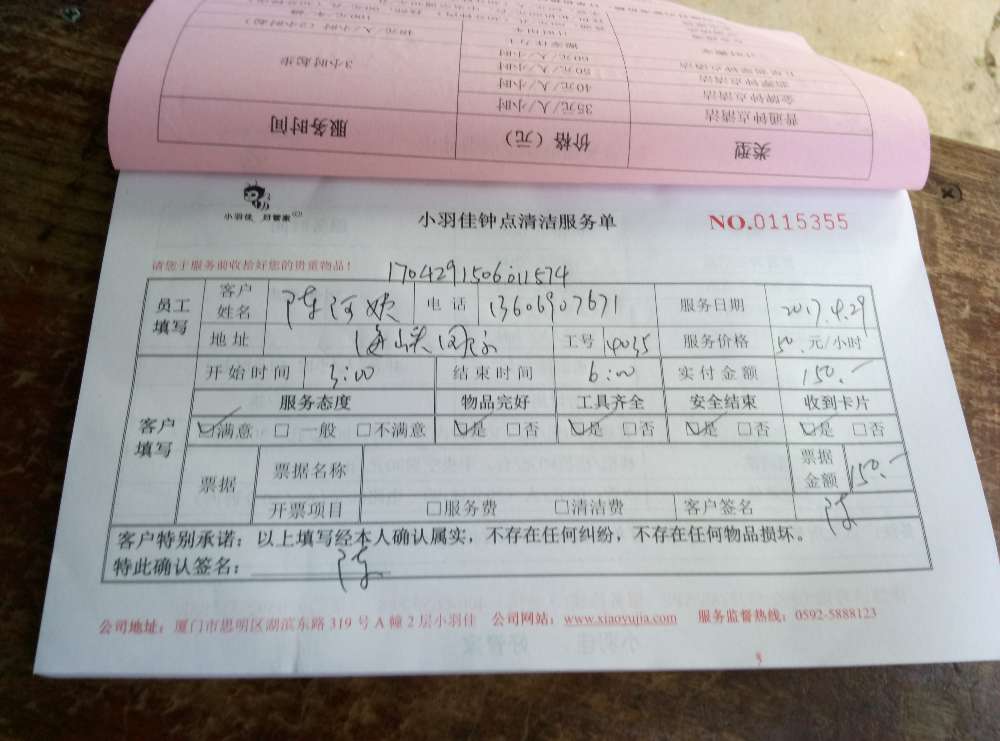 类型 价格（元） 服务时间
普通钟点清洁 35元/人/小时 3小时起步
金牌钟点清洁 40元/人/小时
50元/人/小时
60元/人/小时
小羽佳 好管家
小羽佳钟点清洁服务单
NO.0115355
请您于服务前收拾好您的贵重物品！
1704291506011574
员工填写 客户姓名 陈河 电话 13606907671 服务日期 2017.4.29
地址 海峡国际 工号 14035 服务价格 50.元/小时
客户填写 开始时间 3:00 结束时间 6:00 实付金额 150.-
服务态度 物品完好 工具齐全 安全结束 收到卡片
☑满意 □ 一般 □不满意 ☑是 □否 ☑是 □否 ☑是 □否 ☑是 □否
票据 票据名称 票据金额 150.-
开票项目 □服务费 □清洁费 客户签名 陈
客户特别承诺：以上填写经本人确认属实，不存在任何纠纷，不存在任何物品损坏。
特此确认签名： 陈
公司地址：厦门市思明区湖滨东路 319 号 A 幢 2 层小羽佳 公司网站：www.xiaoyujia.com 服务监督热线：0592-5888123